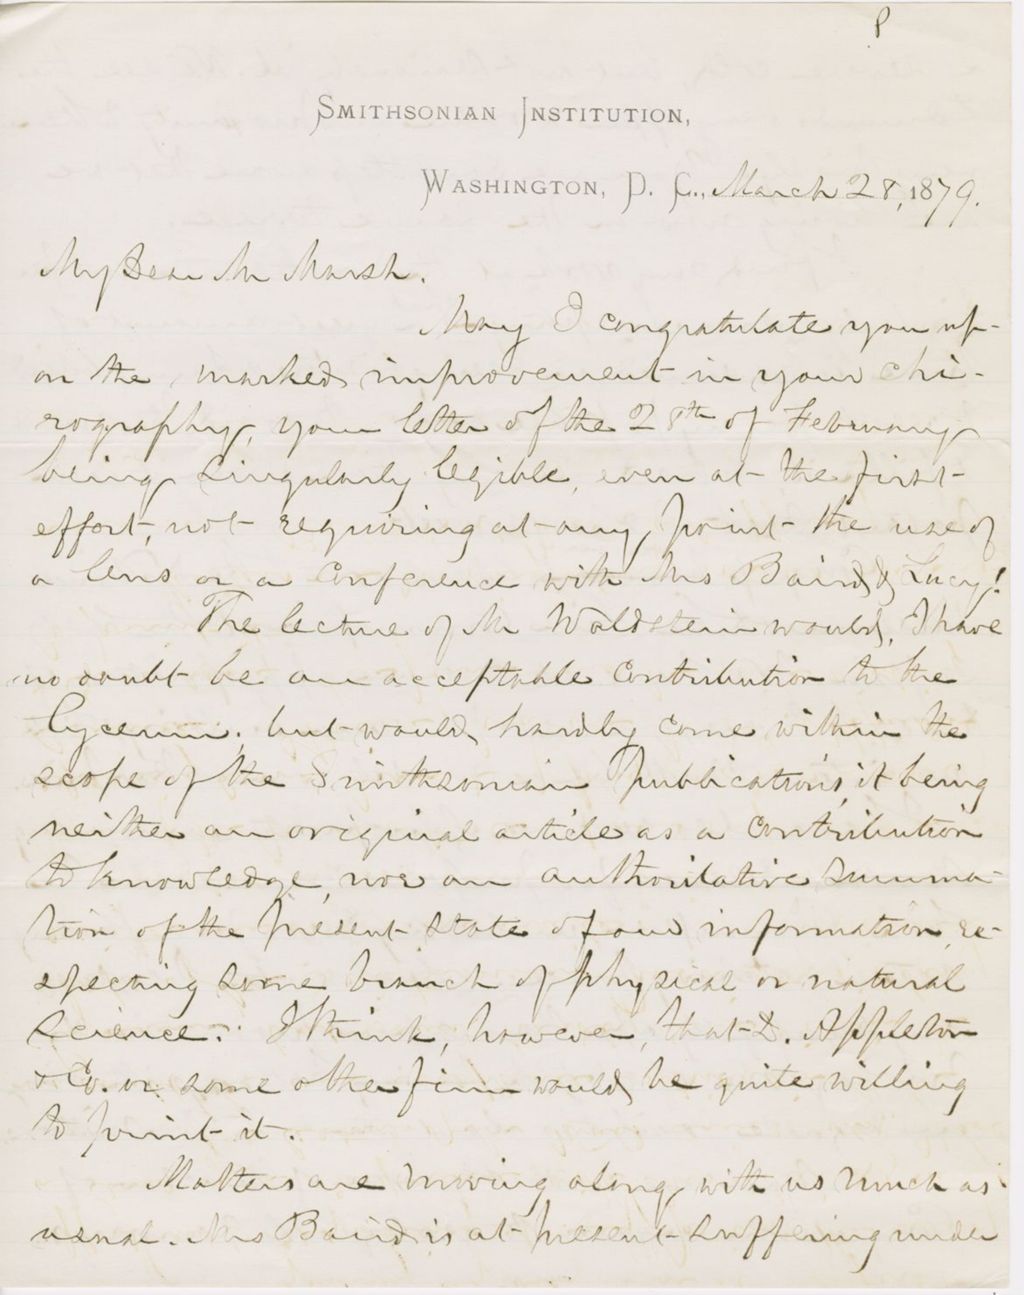 P
SMITHSONIAN INSTITUTION,
WASHINGTON, D. C., March 28, 1879.
My Dear Mr Marsh.
May I congratulate you up-
on the marked improvement in your chi-
rography, your letter of the 28th of February
being singularly legible, even at the first
effort, not requiring at any point the use of
a lens or a conference with Mrs Baird & Lucy!
The lecture of Mr Waldstein would, I have
no doubt be an acceptable contribution to the
Lyceum; but would hardly come within the
scope of the Smithsonian Publications, it being
neither an original article as a contribution
to knowledge, nor an authoritative summa-
tion of the present state of our information, re-
specting some branch of physical or natural
science. I think, however, that D. Appleton
& Co. or some other firm would be quite willing
to print it.
Matters are moving along with us much as
usual. Mrs Baird is at present suffering under